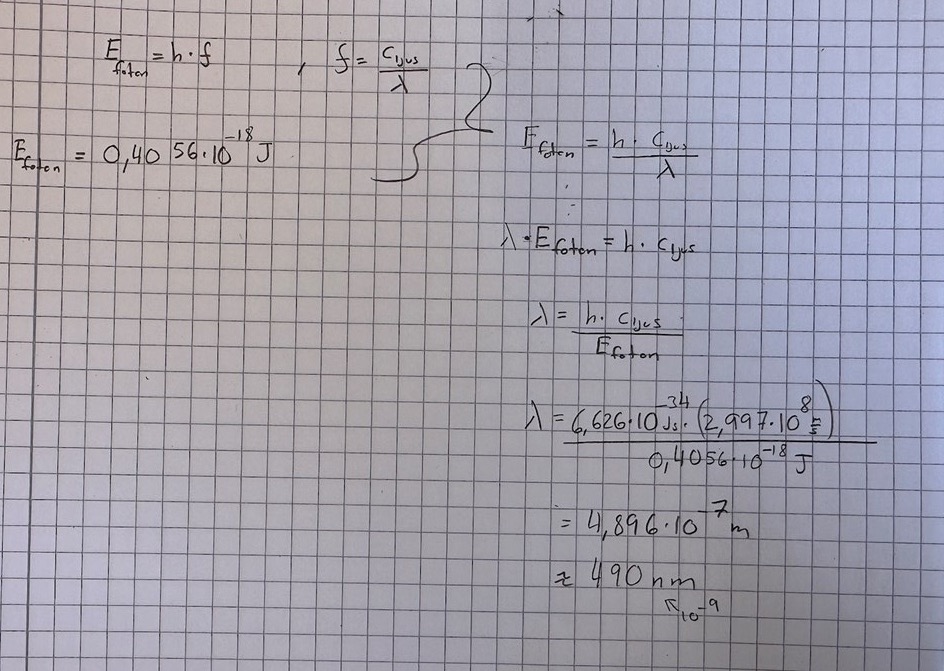 E_foton = h · f , f = c_ljus / λ
E_foton = 0,4056·10^-18 J
E_foton = h · c_ljus / λ
λ · E_foton = h · c_ljus
λ = h · c_ljus / E_foton
λ = 6,626·10^-34 Js · (2,997·10^8 m/s) / 0,4056·10^-18 J
= 4,896·10^-7 m
≈ 490 nm
↖10^-9